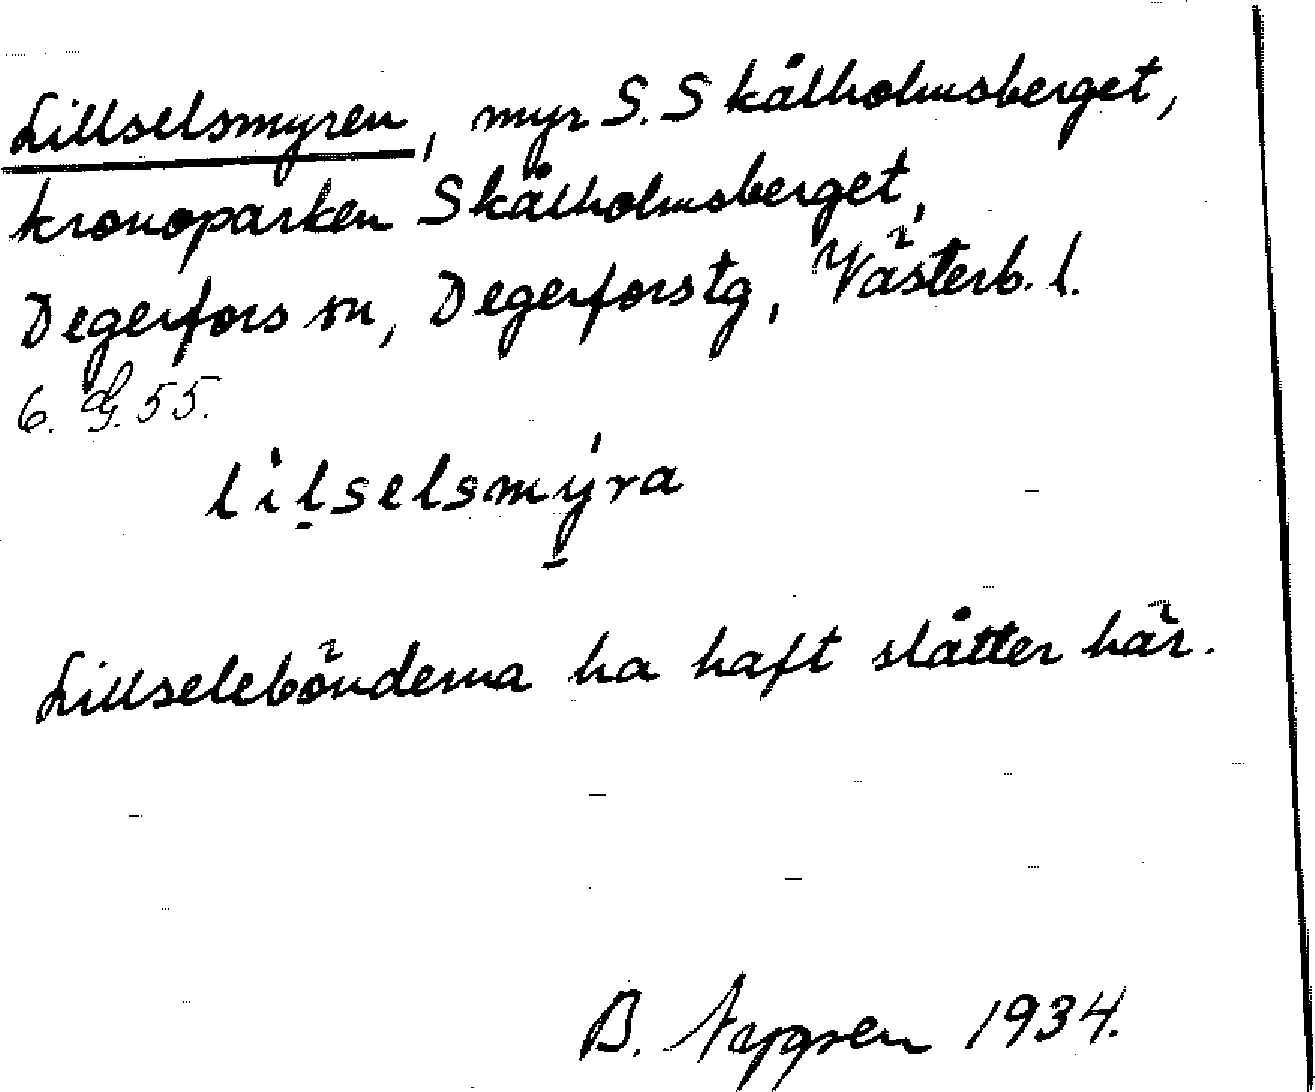 Lillselsmyren, myr S. Skålholmsberget,
kronoparken Skålholmsberget,
Degerfors sn, Degerfors tg, Västerb. l.
6. G. 55.
lilselsmyra
Lillselebönderna ha haft slåtter här.
B. Nygren 1934.